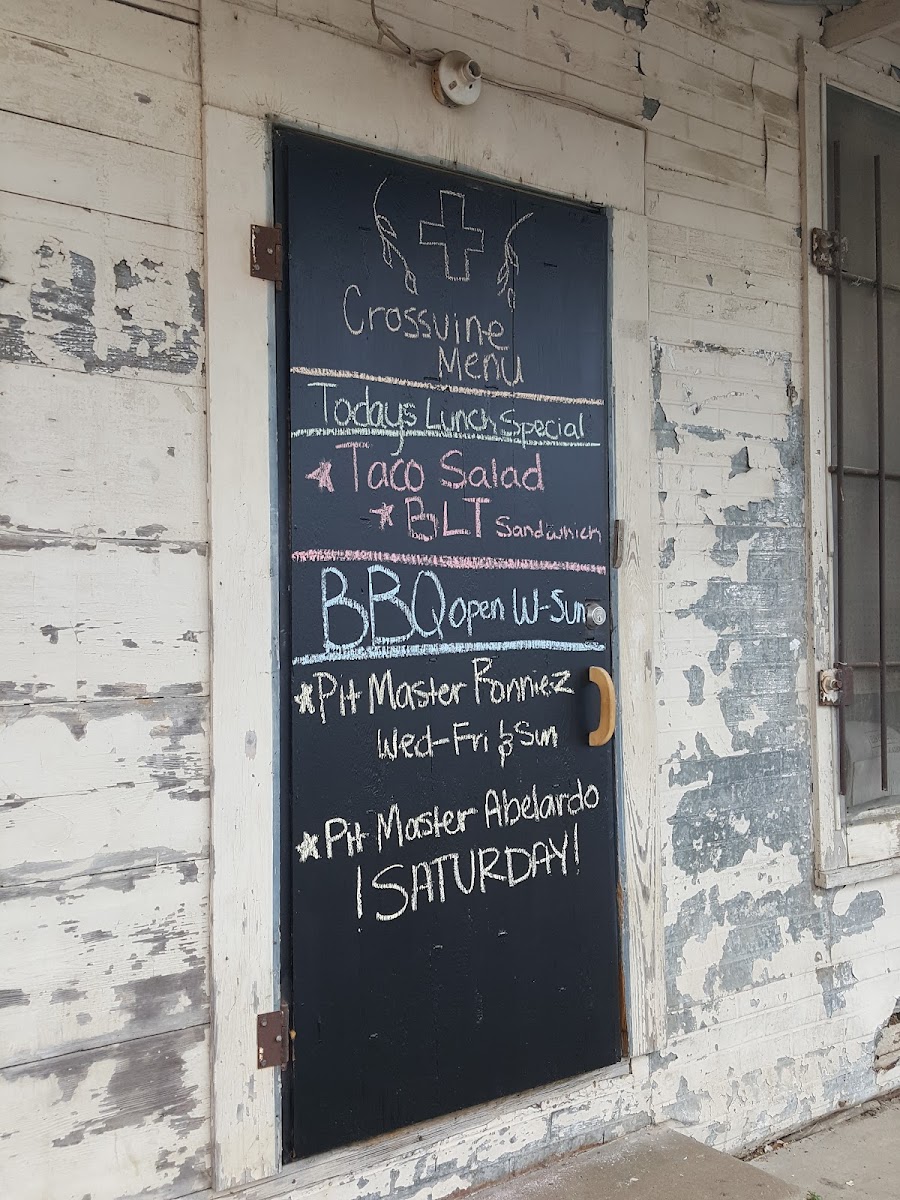 Crossvine
Menu
Todays Lunch Special
Taco Salad
BLT Sandwhich
BBQ open W-Sun
Pit Master Ronniez
Wed-Fri & Sun
Pit Master Abelardo
¡SATURDAY!